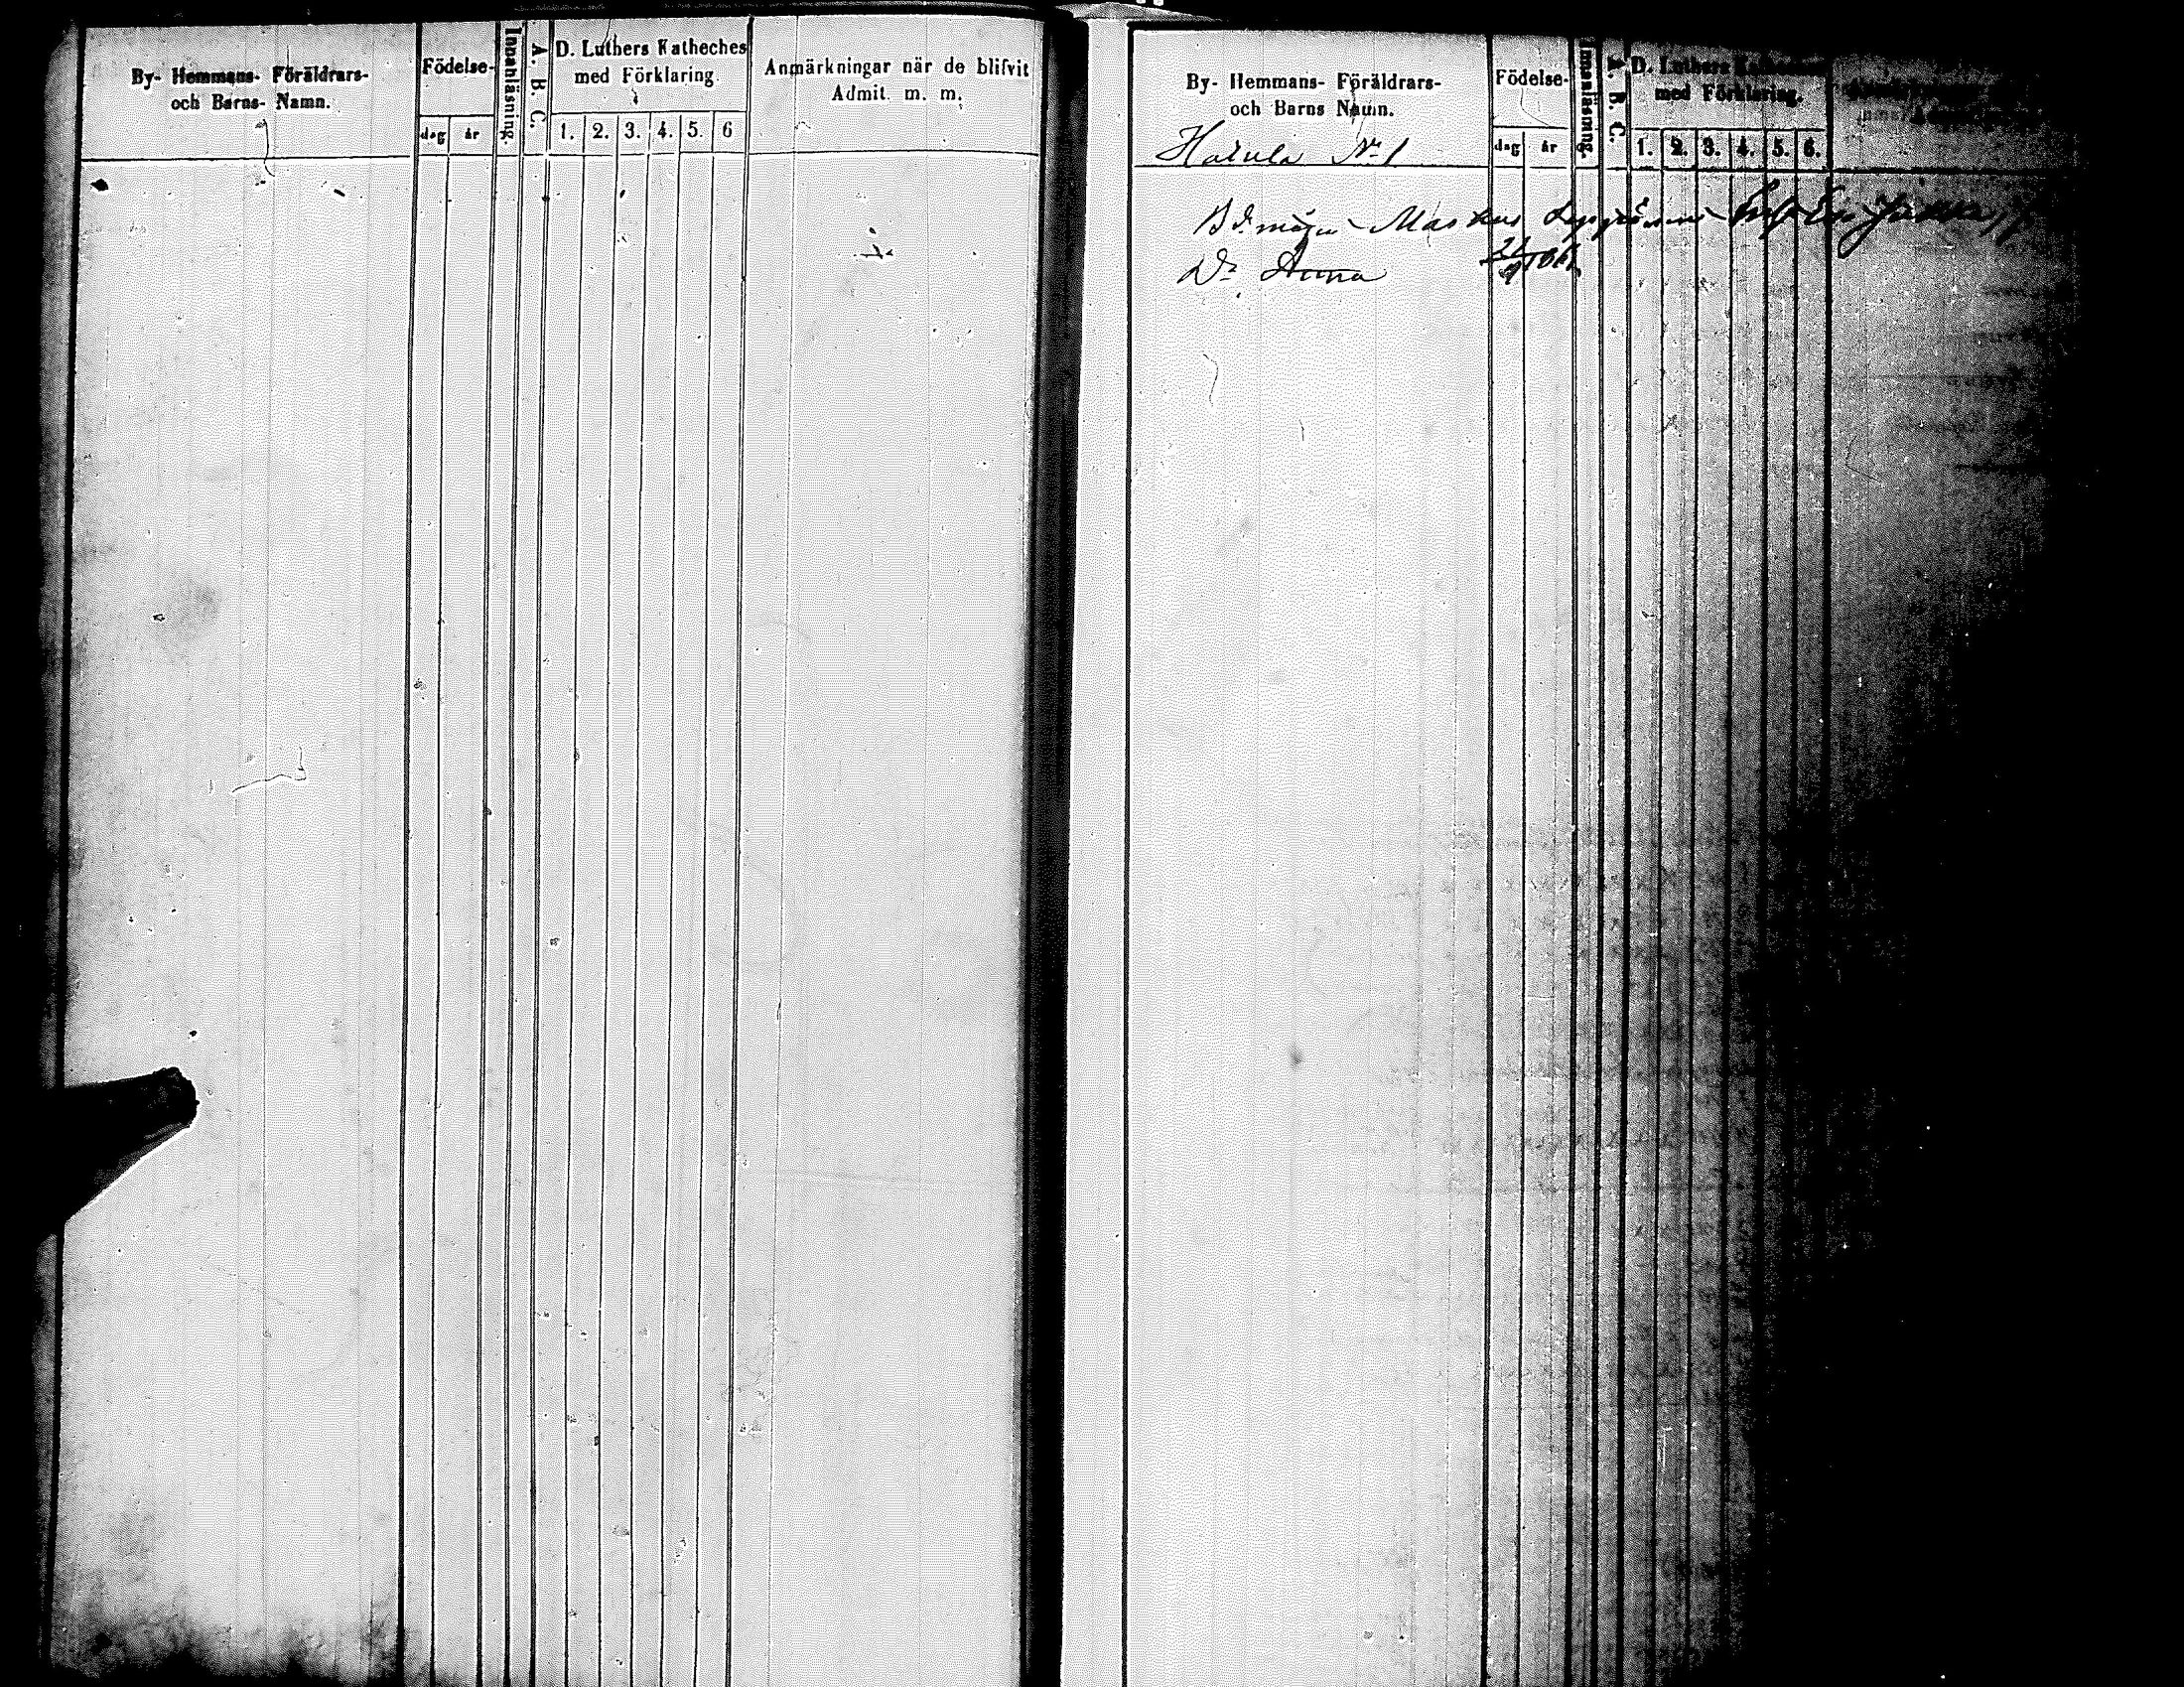 By- Hemmans- Föräldrars-
och Barns- Namn.
Födelse-
dag år
Innanläsning.
A. B. C.
D. Luthers Katheches
med Förklaring.
1. 2. 3. 4. 5. 6
Anmärkningar när de blifvit
Admit. m. m.
By- Hemmans- Föräldrars-
och Barns Namn.
Harula No 1
Födelse-
dag år
Innanläsning.
A. B. C.
D. Luthers
med Förklaring.
1. 2. 3. 4. 5. 6.
Maskus
Dr Anna